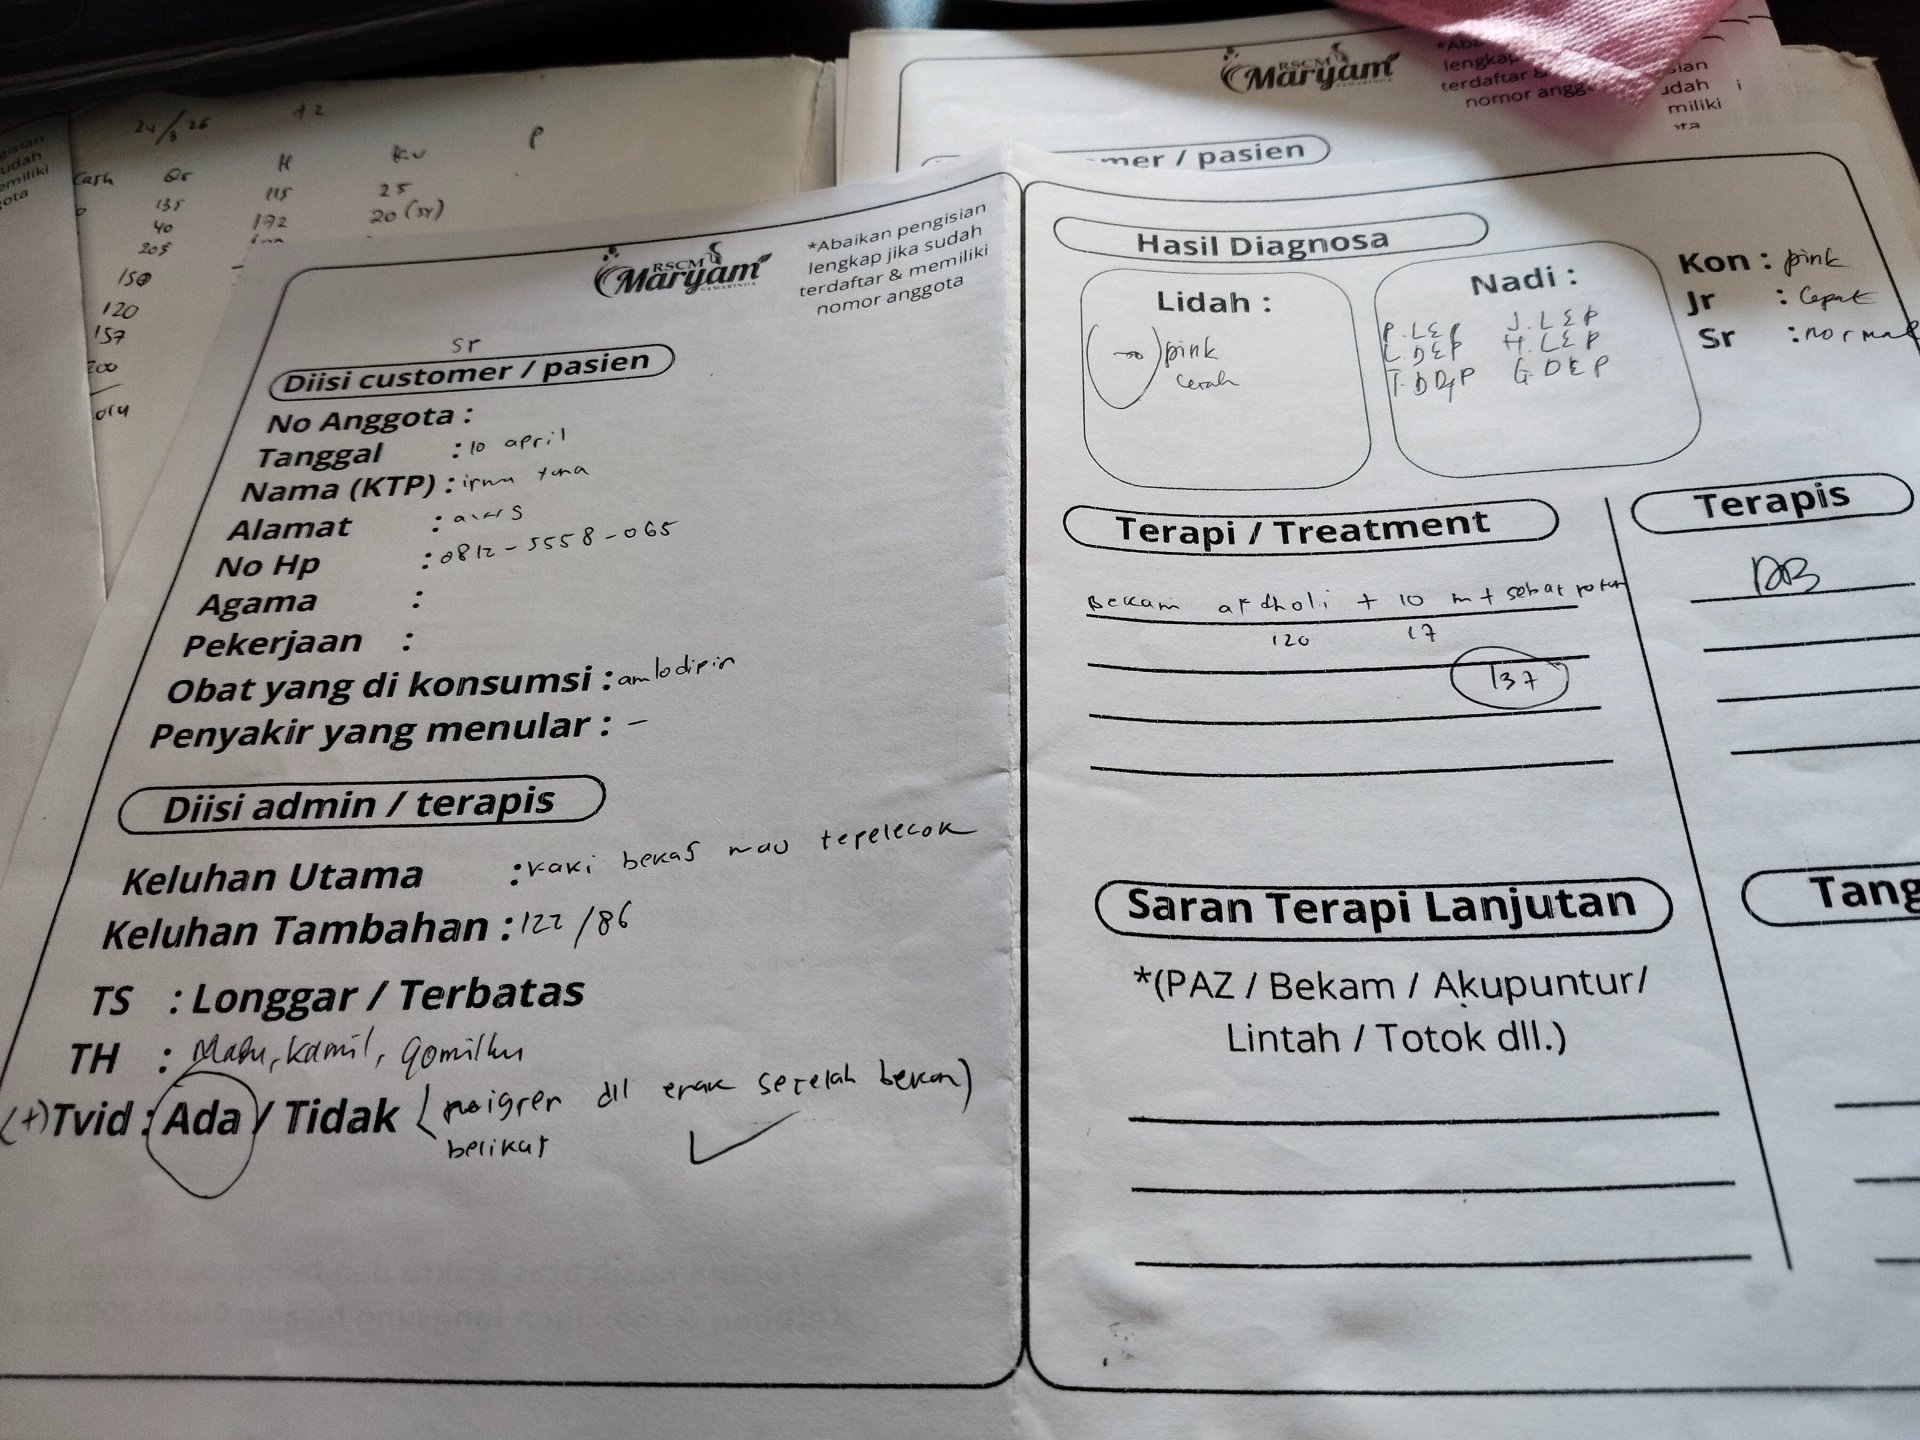 24/3 26
Cash Qr H P
135 115 25
40 172 20 (sr)
205
150
120
157
200
RSCM
Maryam
SAMARINDA
*Abaikan pengisian
lengkap jika sudah
terdaftar & memiliki
nomor anggota
sr
Diisi customer / pasien
No Anggota :
Tanggal : 10 april
Nama (KTP) : irma
Alamat :
No Hp : 0812-5558-065
Agama :
Pekerjaan :
Obat yang di konsumsi : amlodipin
Penyakir yang menular : -
Diisi admin / terapis
Keluhan Utama : kaki bekas mau tepelecok
Keluhan Tambahan : 122/86
TS : Longgar / Terbatas
TH : Madu, kamil, qomilku
(+) Tvid : Ada / Tidak (migren dll enak setelah bekam)
belikat
RSCM
Maryam
lengkap
terdaftar &
nomor angg
miliki
mer / pasien
Hasil Diagnosa
Lidah :
pink
cerah
Nadi :
P. L E P J. L E P
L. D E P H. L E P
T. D D P G. D E P
Kon : pink
Jr : Cepat
Sr : normal
Terapi / Treatment
Bekam afdholi + 10 m + sehat rotan
120 17
137
Terapis
DB
Saran Terapi Lanjutan
*(PAZ / Bekam / Akupuntur/
Lintah / Totok dll.)
Tang